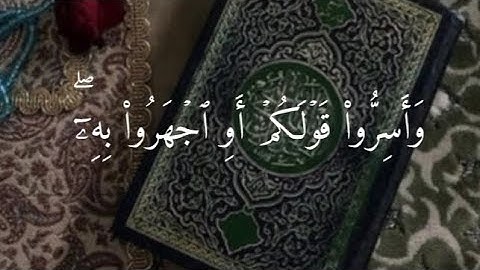 وَأَسِرُّوا۟ قَوْلَكُمْ أَوِ ٱجْهَرُوا۟ بِهِۦٓ ۖ